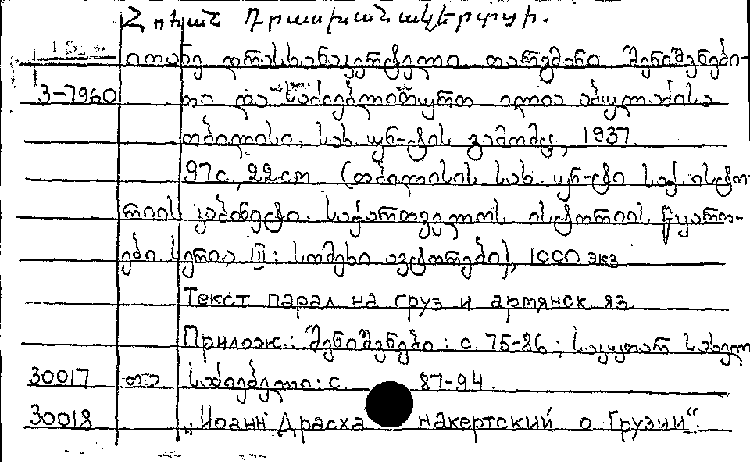 Հովհան Դրասխանակերտցի.
იოანე დრასხანაკერტელი თარგმანი შენიშვნები-
3-7960 თა და საძიებლითურთ ილია აბულაძისა
თბილისი, სახ. უნ-ტის გამომც, 1937.
97с, 22см (თბილისის სახ. უნ-ტი საქ. ისტო-
რიის კაბინეტი. საქართველოს ისტორიის წყარო-
ები სერია III: სომეხი ავტორები), 1000 экз
Текст парал на груз и армянск яз
Прилож.: შენიშვნები: с. 75-86; საკუთარ სახელ
30017 თა საძიებელი: с. 87-94.
30018 „Иоанн Драсханакертский о Грузии“.